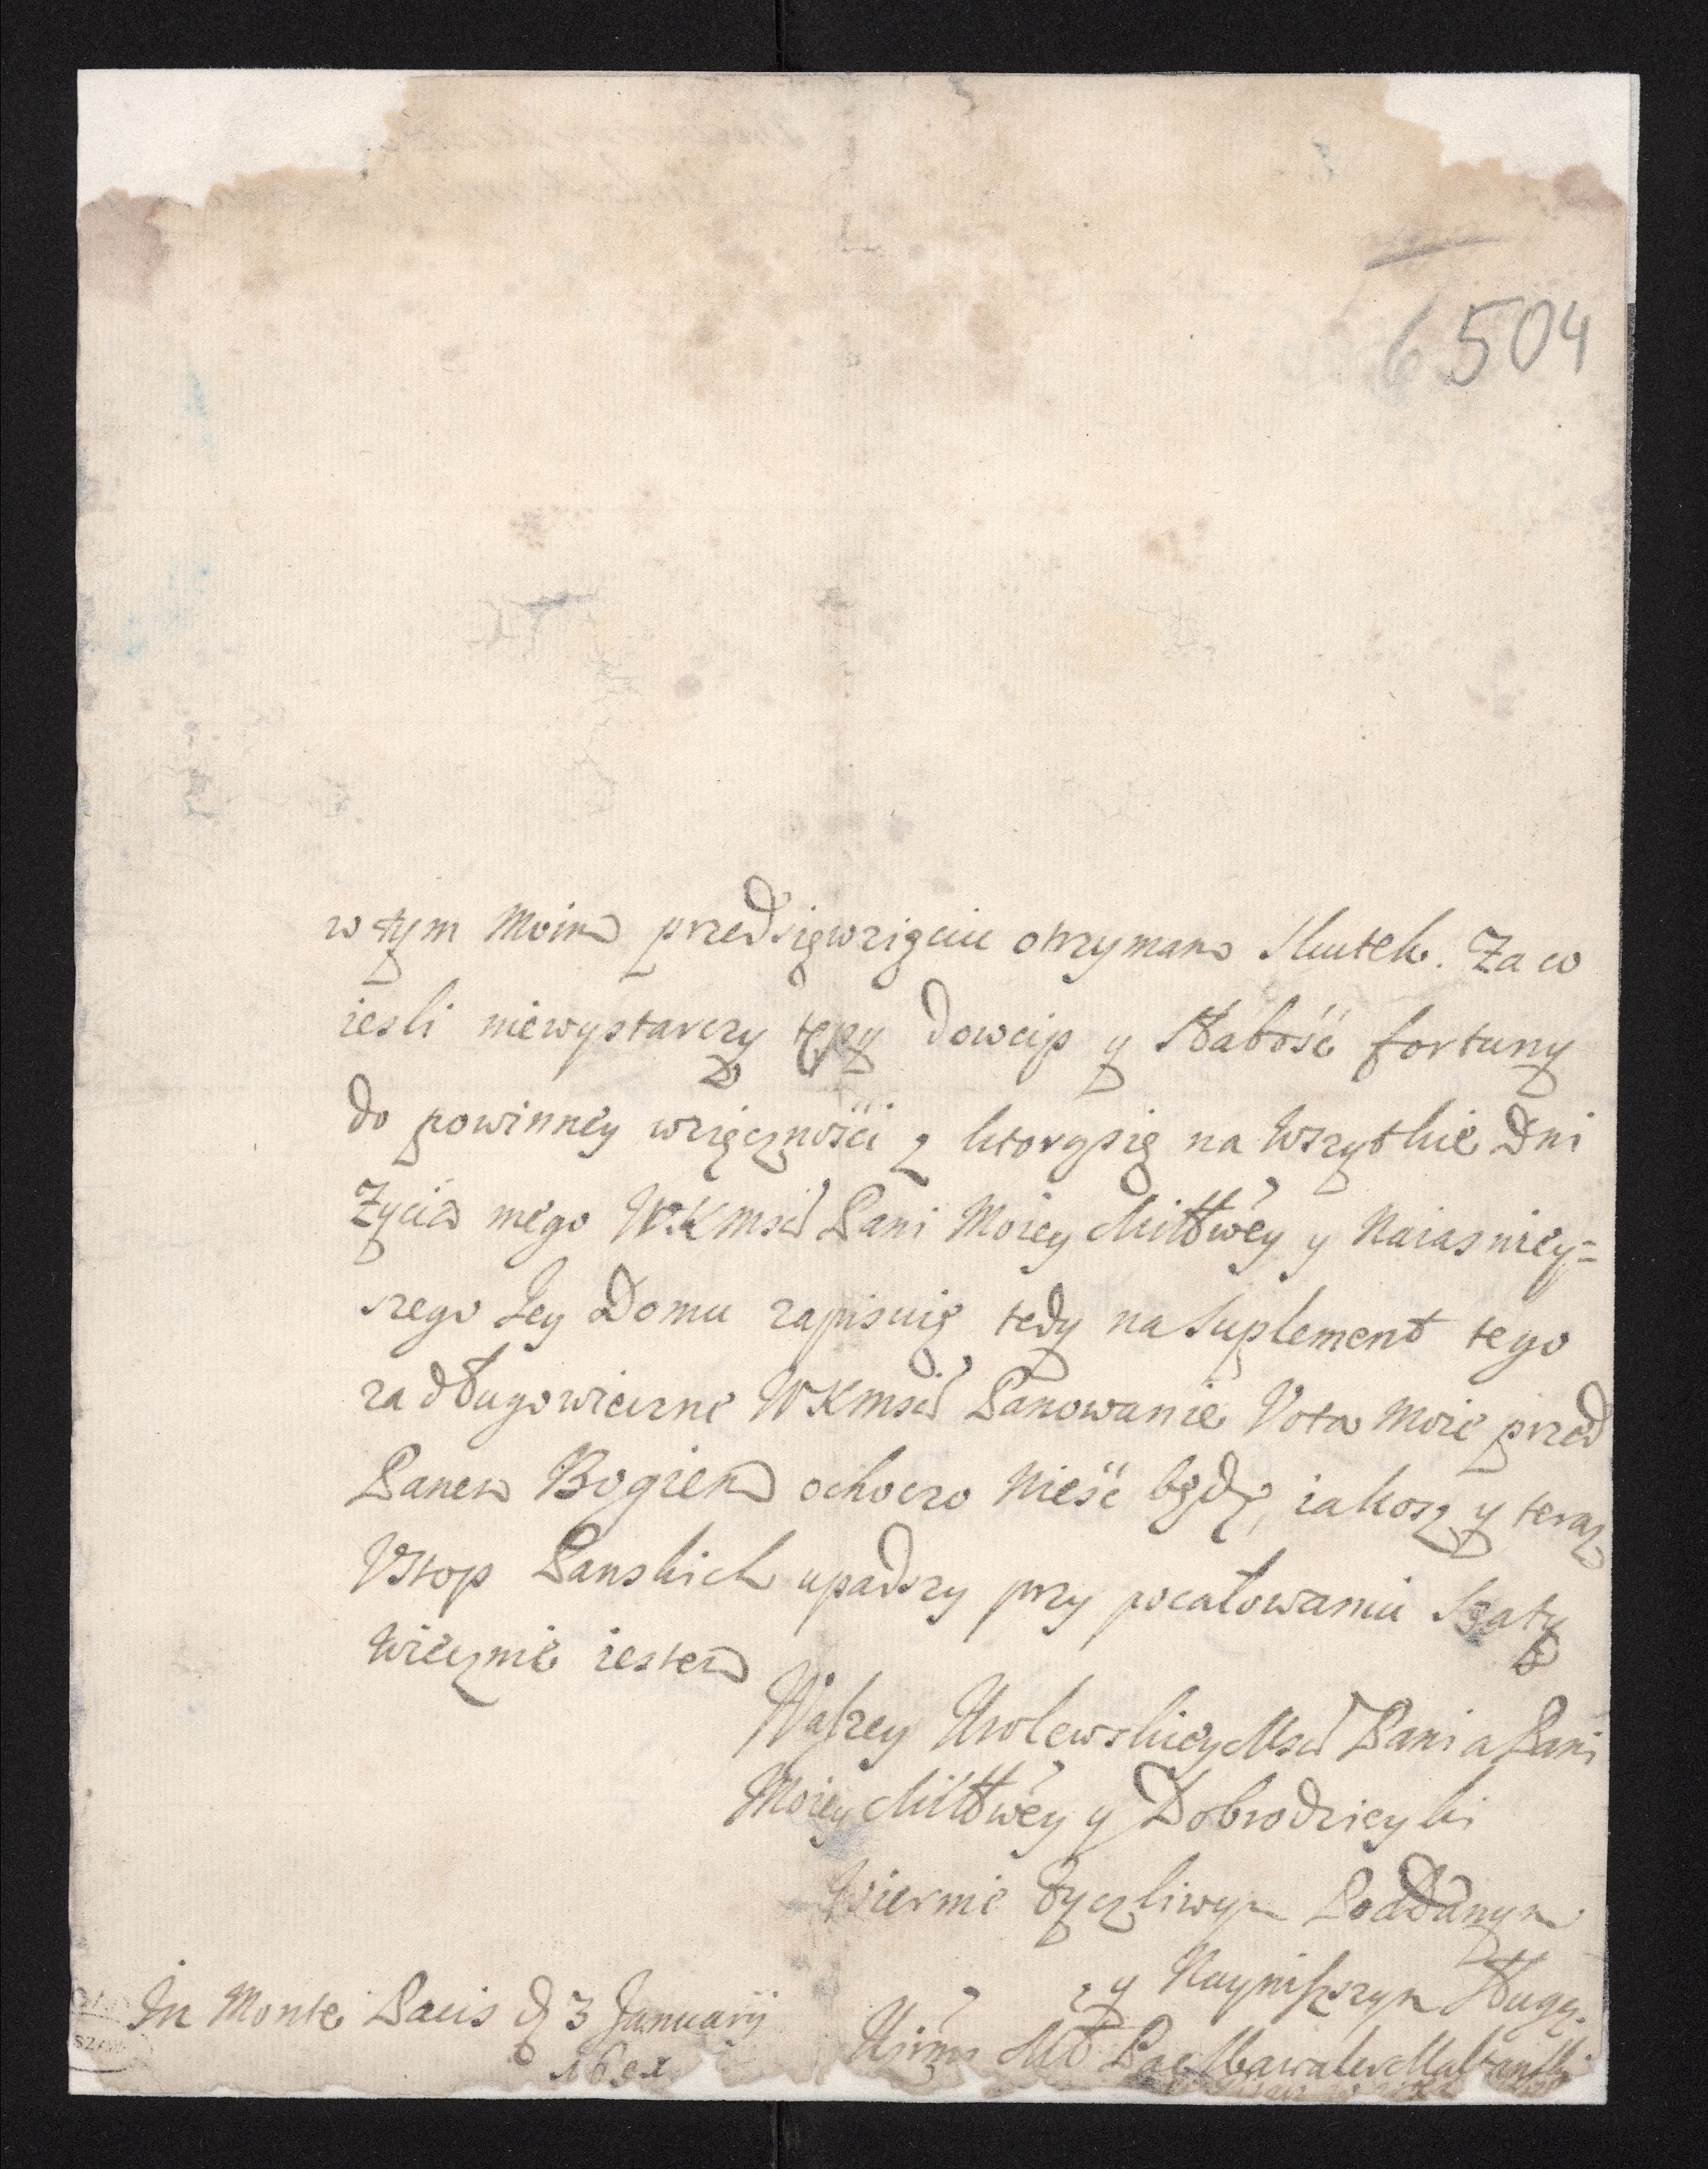 6504
w tym Moim przedsięwzięciu otrzymam Skutek. Za co
iesli niewystarczy tępy dowcip y Słabość fortuny
do powinney wzięcznosci z ktorąsię na Wszytkie Dni
Życia mego WKMsci Pani Moiey Miłłwey y Naiasniey=
szego Jey Domu zapisuię tedy na Suplement tego
za długowieczne WKMsci Panowanie Vota Moie przed
Panem Bogiem ochoczo Nieść będę, iakosz y teraz
V Stop Panskich upadszy przy pocałowaniu Szaty
Wiecznie iestem
Waszey Krolewskiey Msci Pani a Pani
Moiey Miłłwey y Dobrodzieyki
Wiernie Życzliwym Poddanym
y Naynisszym Sługą
In Monte Pacis d 3 January
Pac Kawaler Maltanski